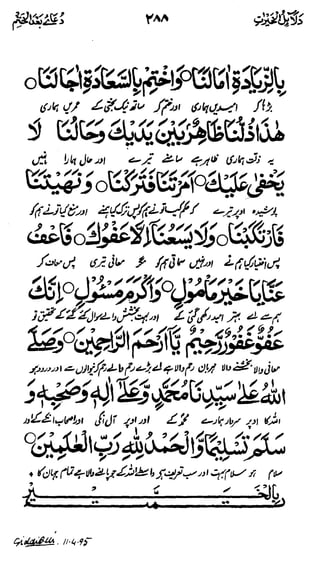 دعائے بعد الختم ۲۸۸ دلائل الخیرات
بِالزِّيَادَةِ اٰمَالَنَا وَاخْتِمْ بِالسَّعَادَةِ اٰجَالَنَا
بڑھا کر امیدیں ہماری اور ختم کر ساتھ نیک بختی کے عمریں ہماری
هٰذَا ذُلُّنَا ظَاهِرٌ بَيْنَ يَدَيْكَ وَحَالُنَا لَا
یہ ذلت ہماری ظاہر ہے سامنے تیرے اور حال ہمارا نہیں
يَخْفٰى عَلَيْكَ اَمَرْتَنَا فَتَرَكْنَا وَنَهَيْتَنَا
پوشیدہ اوپر تیرے حکم کیا تونے ہم کو پس ترک کیا ہم نے اور منع کیا تونے ہم کو
فَارْتَكَبْنَا وَلَا يَسَعُنَا اِلَّا عَفْوُكَ فَاعْفُ
پس اختیار کیا ہم نے اور نہیں سماتی ہم کو مگر معافی تیری پس معاف کر
عَنَّا يَا خَيْرَ مَاْمُوْلٍ وَّاَكْرَمَ مَسْئُوْلٍ اِنَّكَ
ہم سے اے بہتر امید رکھے گئے کے اور بہت بخشش والے سوال کئے گئے کے تحقیق تو
عَفُوٌّ غَفُوْرٌ رَّحِيْمٌ يَّا اَرْحَمَ الرَّاحِمِيْنَ وَصَلَّى
معافی والا بخشنے والا مہربان رحم والا ہے اے بڑے رحم والے رحم کرنیوالوں سے اور درود ہو
اللهُ عَلٰى سَيِّدِنَا مُحَمَّدٍ وَّعَلٰى اٰلِهٖ وَصَحْبِهٖ وَ
اللہ کا اوپر سردار ہمارے محمدؐ کے اور اوپر آل انکی اور اصحاب انکے کے اور
سَلَّمَ تَسْلِيْمًا وَّالْحَمْدُ لِلّٰهِ رَبِّ الْعٰلَمِيْنَ
سلام ہو سلام بہت اور سب تعریف ہے واسطے اللہ کے جو پالنے والا ہے تمام جہان کا
بِالْخَيْرِ
11.4.95